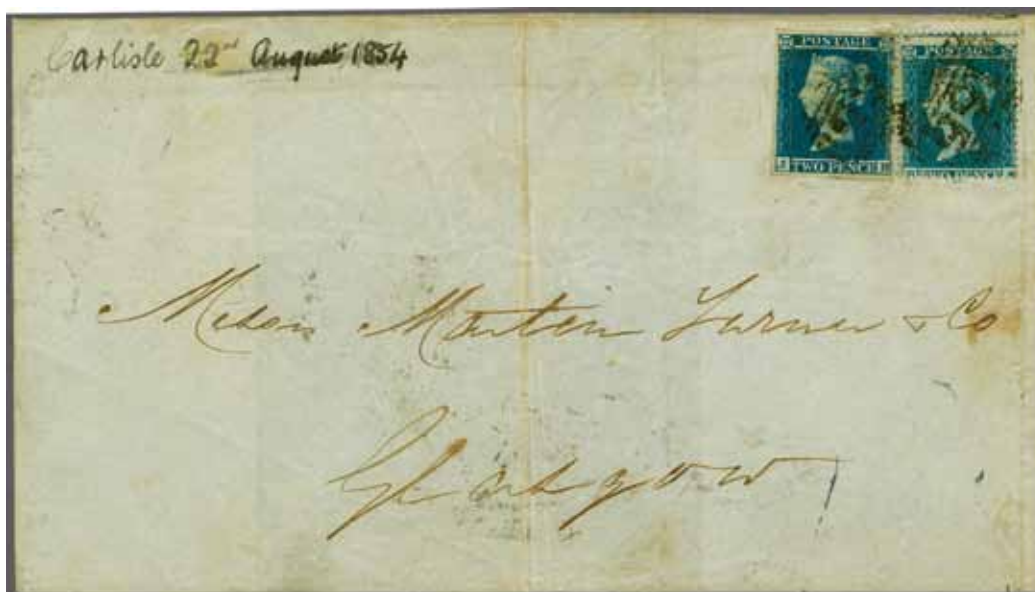 Carlisle 22nd August 1854
POSTAGE POSTAGE
TWO PENCE TWO PENCE
Messrs Martin Turner & Co
Glasgow